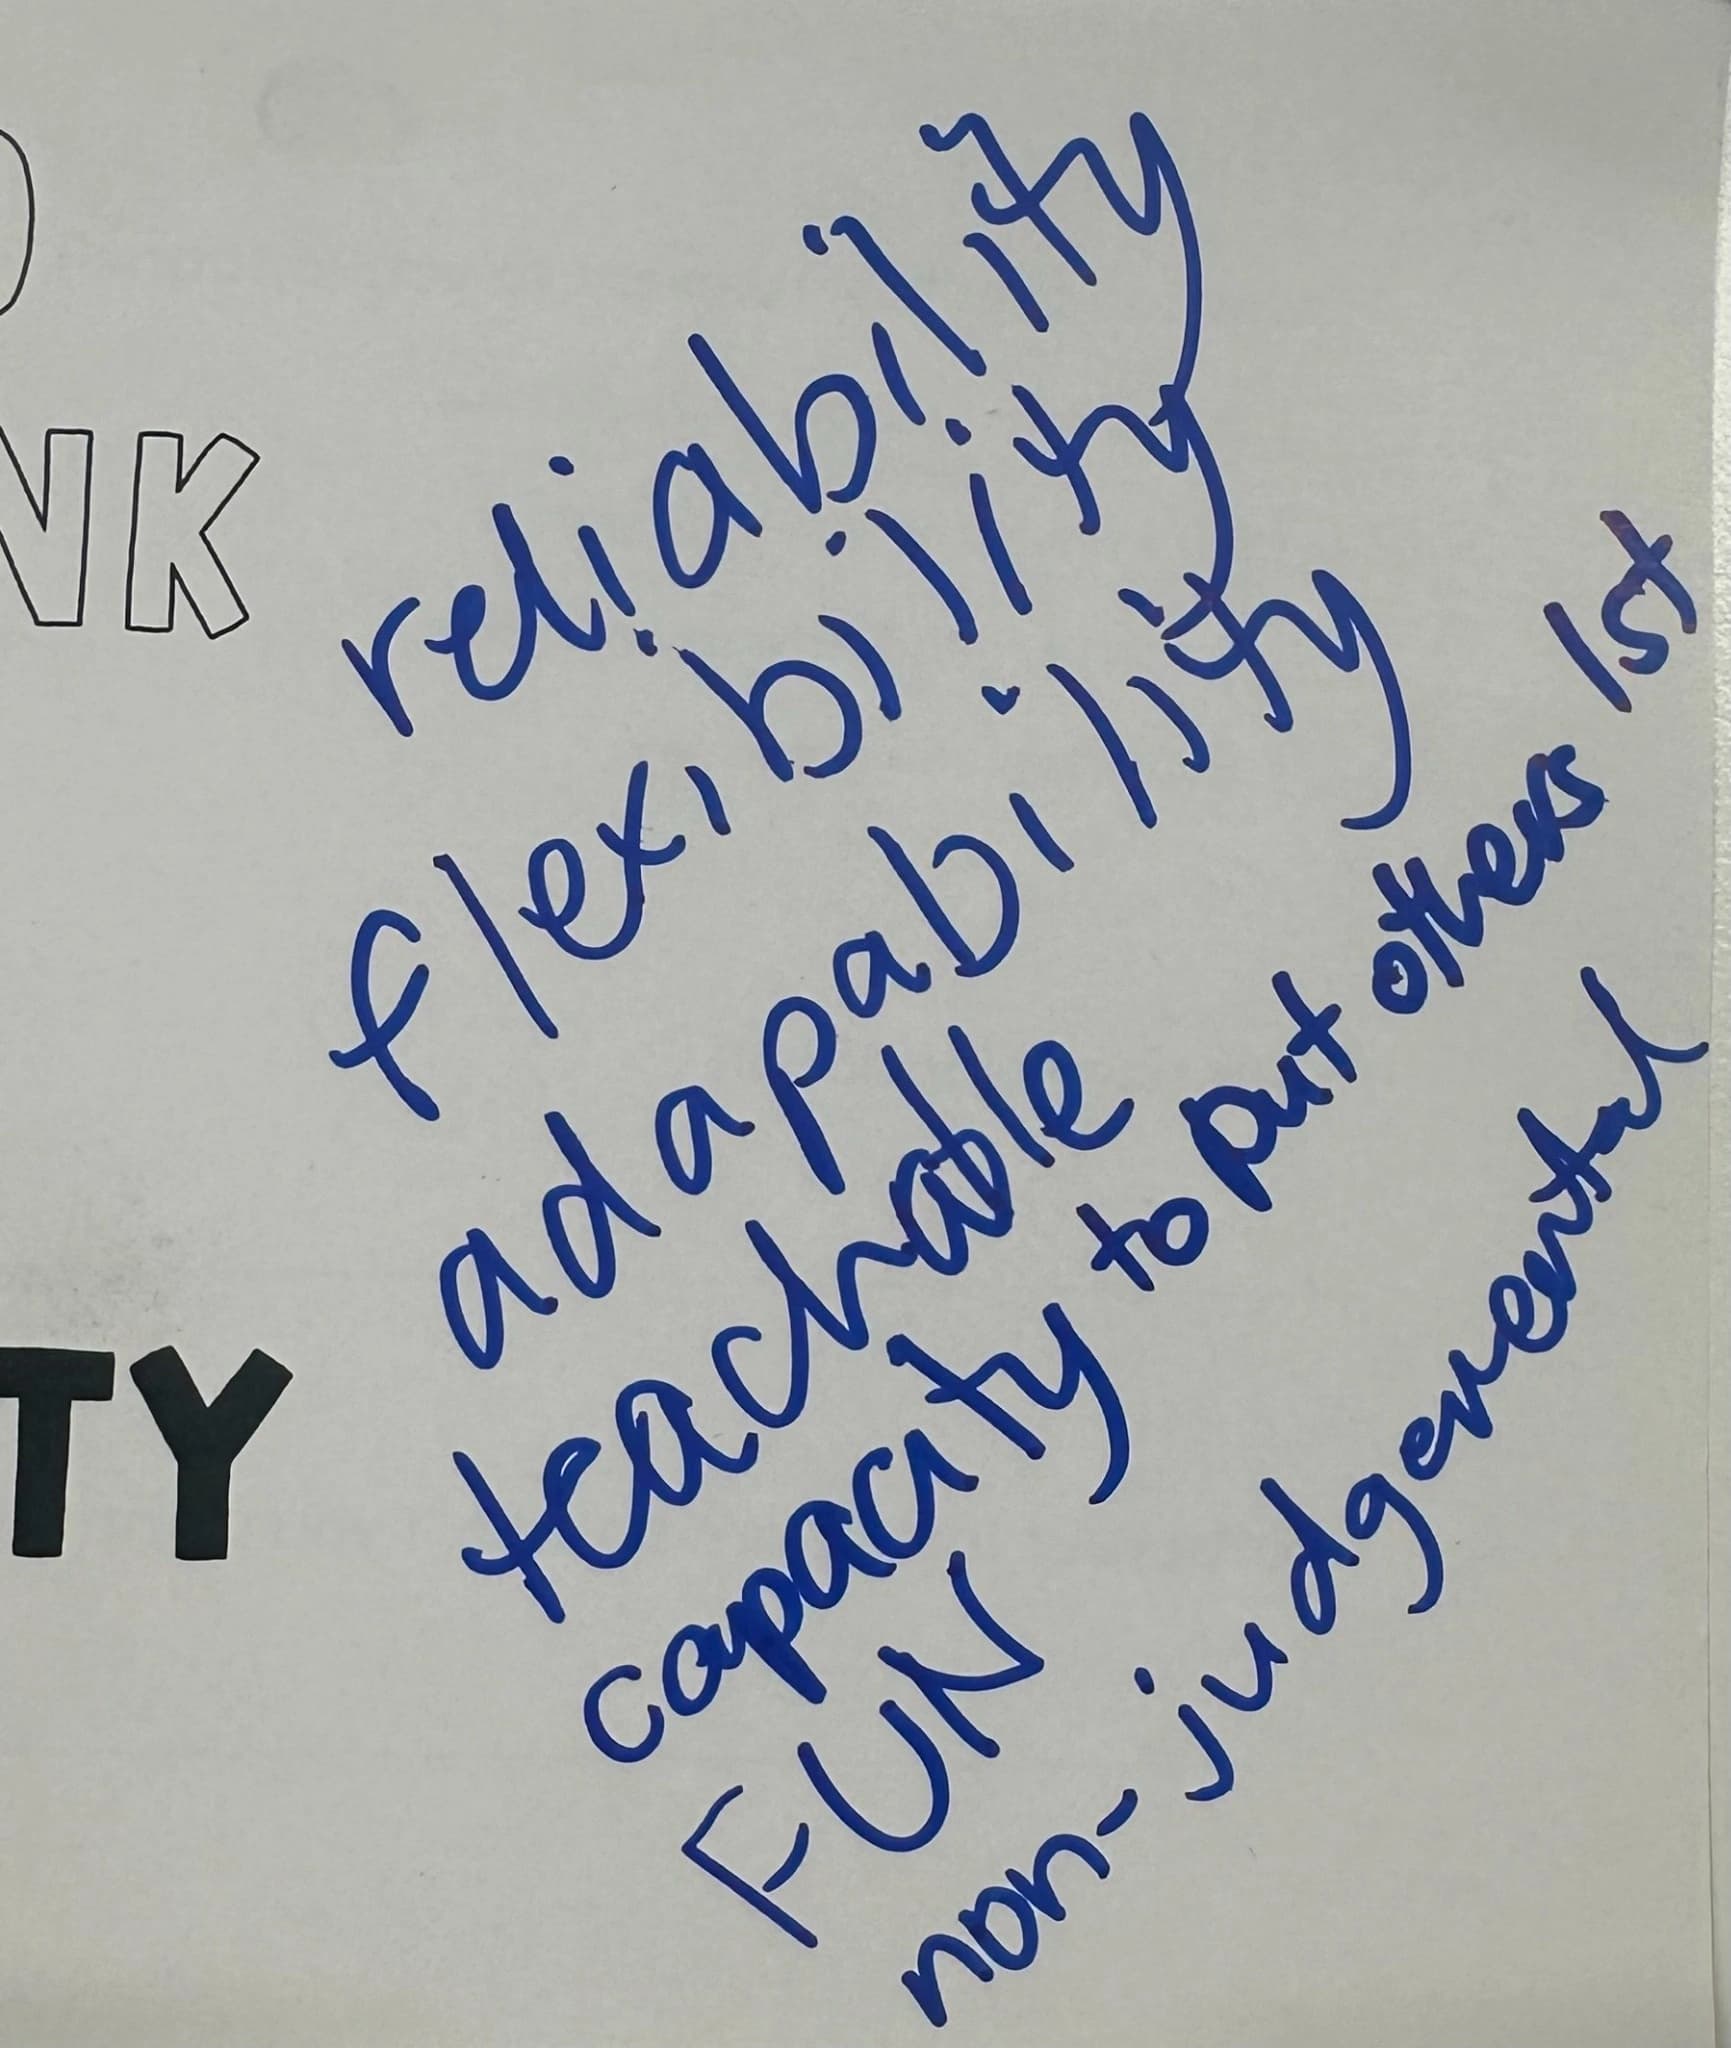 NK
TY
reliability
flexibility
adapability
teachable
capacity to put others 1st
FUN
non-judgemental